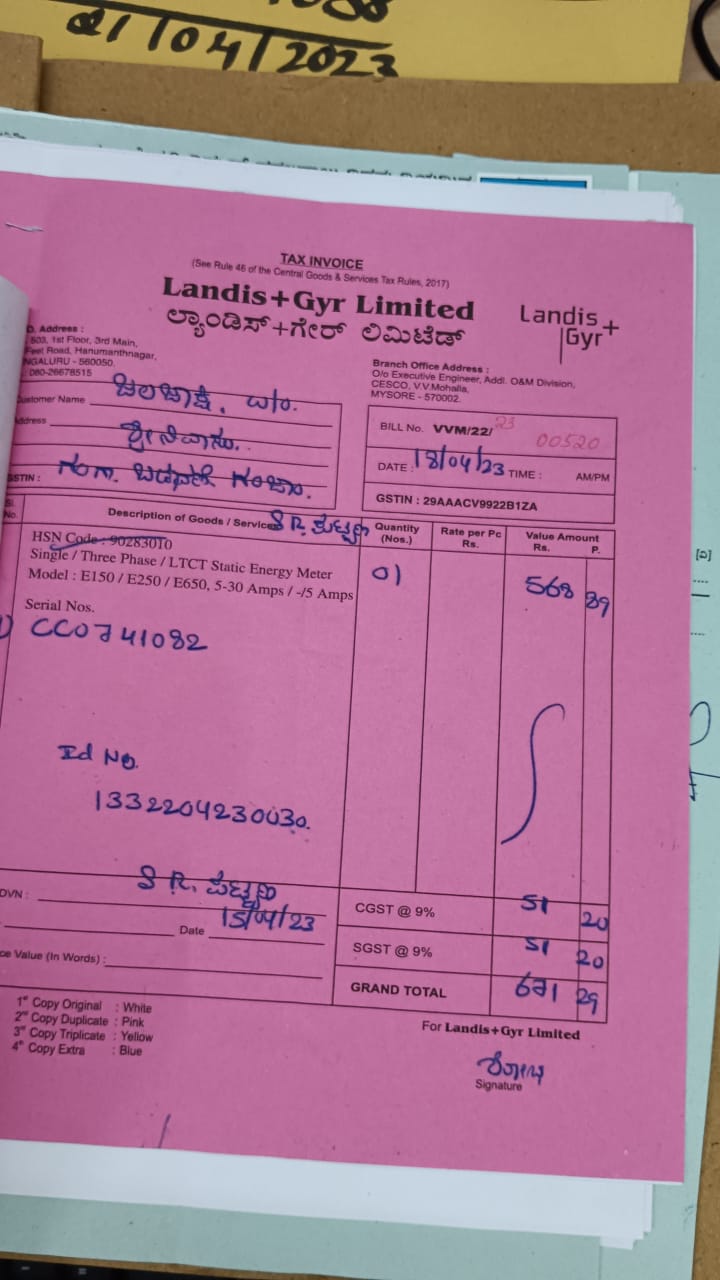 21/04/2023
TAX INVOICE
(See Rule 46 of the Central Goods & Services Tax Rules, 2017)
Landis+Gyr Limited
ಲ್ಯಾಂಡಿಸ್+ಗೇರ್ ಲಿಮಿಟೆಡ್
Landis+
Gyr
Address :
503, 1st Floor, 3rd Main,
Feet Road, Hanumanthnagar,
NGALURU - 560050.
: 080-26678515
Branch Office Address :
O/o Executive Engineer, Addl. O&M Division,
CESCO, V.V.Mohalla,
MYSORE - 570002.
Customer Name
Address
GSTIN :
BILL No. VVM/22/23 00520
DATE : 18/04/23 TIME : AM/PM
GSTIN : 29AAACV9922B1ZA
Sl. No. Description of Goods / Services Quantity (Nos.) Rate per Pc Rs. Value Amount Rs. P.
HSN Code : 90283010
Single / Three Phase / LTCT Static Energy Meter 01 568 89
Model : E150 / E250 / E650, 5-30 Amps / -/5 Amps
Serial Nos.
1) CC0741082
Id No.
1332204230030.
DVN : S R.
15/04/23
Date
CGST @ 9% 51 20
SGST @ 9% 51 20
ce Value (In Words) :
GRAND TOTAL 671 29
1st Copy Original : White
2nd Copy Duplicate : Pink
3rd Copy Triplicate : Yellow
4th Copy Extra : Blue
For Landis+Gyr Limited
Signature